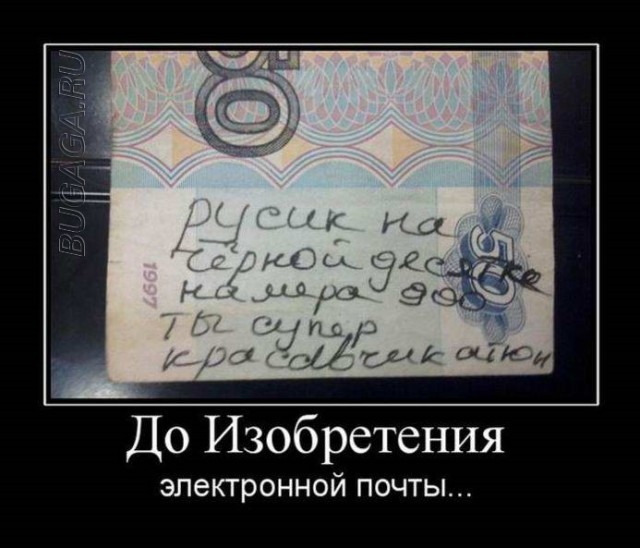 BUGAGA.RU
50
русик на
чёрной десятке
50
намера 900
1997
ты супер
красавчик
До Изобретения
электронной почты...